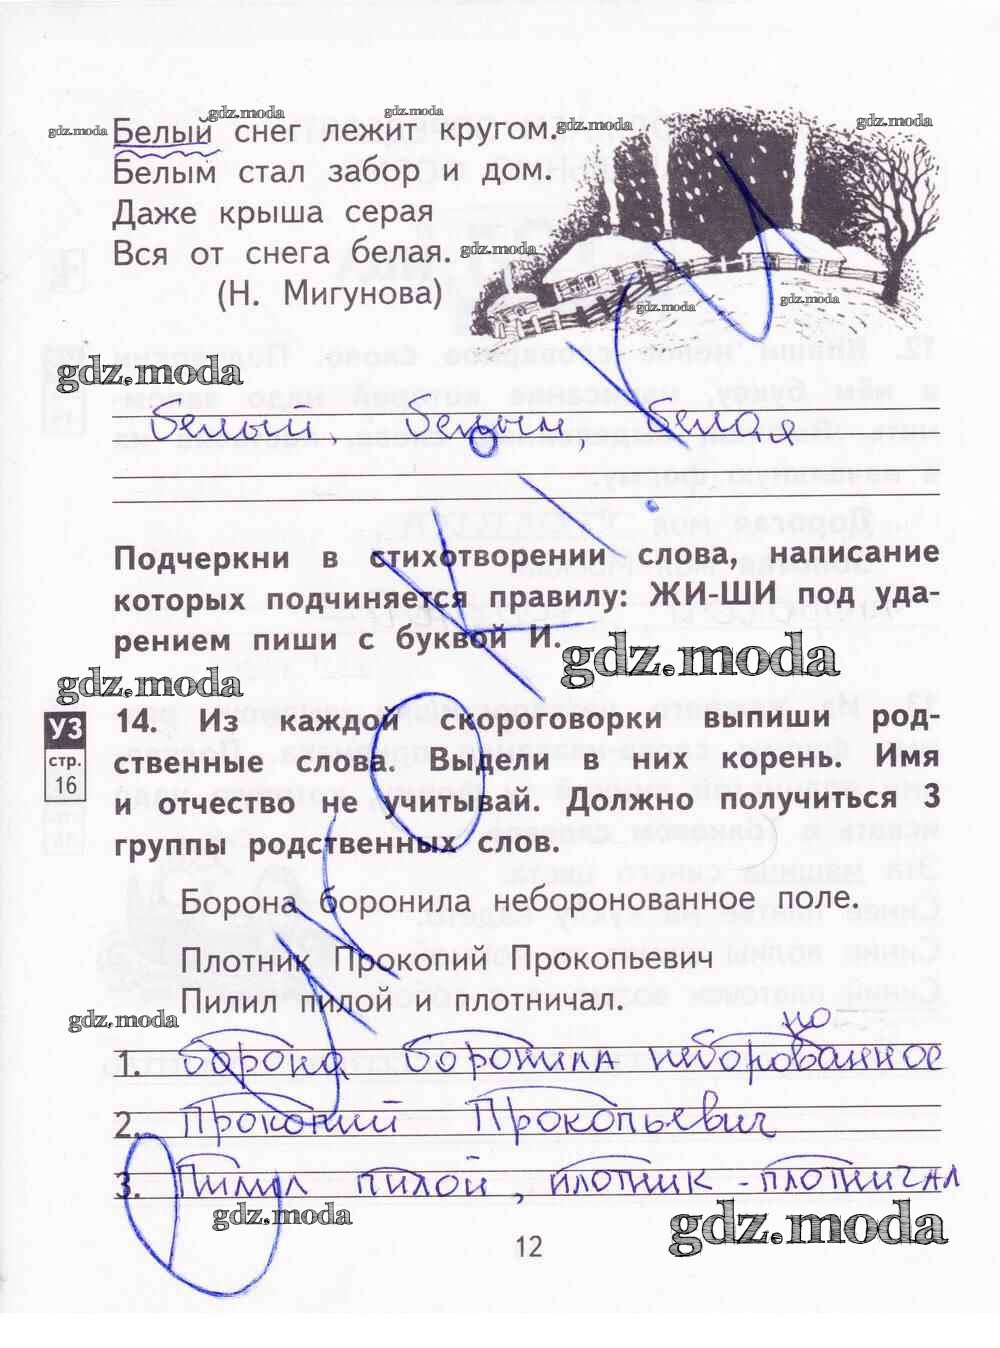 gdz.moda gdz.moda gdz.moda gdz.moda gdz.moda
Белый снег лежит кругом.
Белым стал забор и дом.
Даже крыша серая
Вся от снега белая. gdz.moda
(Н. Мигунова) gdz.moda gdz.moda
gdz.moda
белый, белым, белая
Подчеркни в стихотворении слова, написание
которых подчиняется правилу: ЖИ-ШИ под уда-
рением пиши с буквой И.
gdz.moda
gdz.moda
УЗ
стр.
16
14. Из каждой скороговорки выпиши род-
ственные слова. Выдели в них корень. Имя
и отчество не учитывай. Должно получиться 3
группы родственных слов.
Борона боронила неборонованное поле.
Плотник Прокопий Прокопьевич
Пилил пилой и плотничал.
gdz.moda
но
1. борона боронила неборованное
2. Прокопий Прокопьевич
3. Пилил пилой, плотник - плотничал
gdz.moda gdz.moda
12